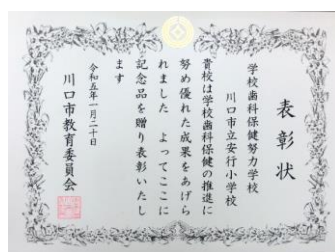 表彰状
学校歯科保健努力学校
川口市立安行小学校
貴校は学校歯科保健の推進に
努め優れた成果をあげら
れました よってここに
記念品を贈り表彰いたし
ます
令和五年一月二十日
川口市教育委員会